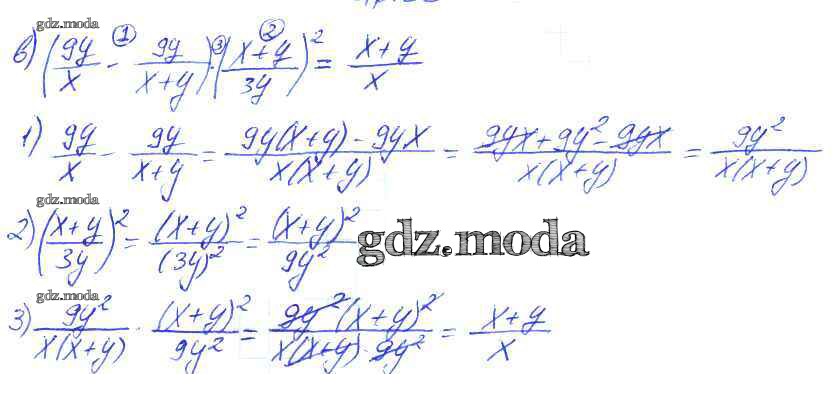 gdz.moda
в) (9y/x - 9y/(x+y)) · ((x+y)/3y)² = (x+y)/x
① ③ ②
1) 9y/x - 9y/(x+y) = (9y(x+y) - 9yx)/(x(x+y)) = (9yx + 9y² - 9yx)/(x(x+y)) = 9y²/(x(x+y))
gdz.moda
2) ((x+y)/3y)² = (x+y)²/(3y)² = (x+y)²/9y²
gdz.moda
gdz.moda
3) 9y²/(x(x+y)) · (x+y)²/9y² = (9y²(x+y)²)/(x(x+y)·9y²) = (x+y)/x